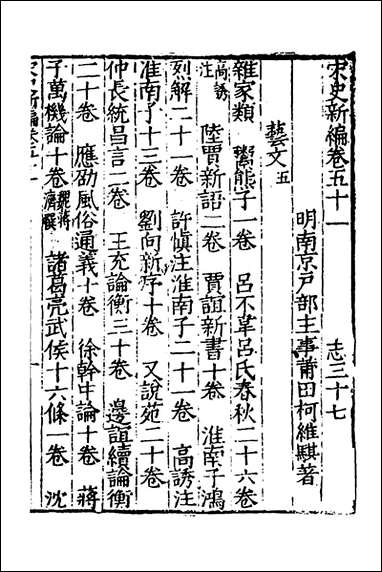 宋史新編卷五十一 志三十七
明南京戶部主事莆田柯維騏著
藝文五
雜家類 鬻熊子一卷 呂不韋呂氏春秋二十六卷
高誘注 陸賈新語二卷 賈誼新書十卷 淮南子鴻
烈解二十一卷 許慎注淮南子二十一卷 高誘注
淮南子十三卷 劉向新序十卷 又說苑二十卷
仲長統昌言二卷 王充論衡三十卷 邊誼續論衡
二十卷 應劭風俗通義十卷 徐幹中論十卷 蔣
子萬機論十卷 魏蔣濟撰 諸葛亮武侯十六條一卷 沈